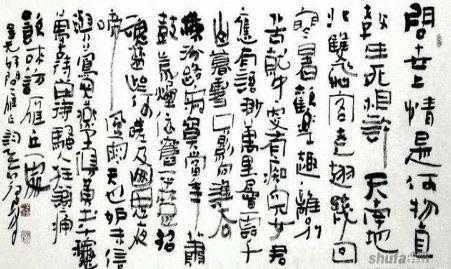 問世上情是何物直
教生死相許天南地
北雙飛客老翅幾回
寒暑歡樂趣離別
苦就中更有痴兒女君
應有語渺萬里層雲千
山暮雪隻影向誰去
橫汾路寂寞當年簫
鼓荒煙依舊平楚招
魂楚些何嗟及
啼風雨天也妒未信
與鶯兒燕子俱黃土千秋
萬古待騷人狂歌痛
飲來訪雁丘處
元好問雁丘詞
shufa